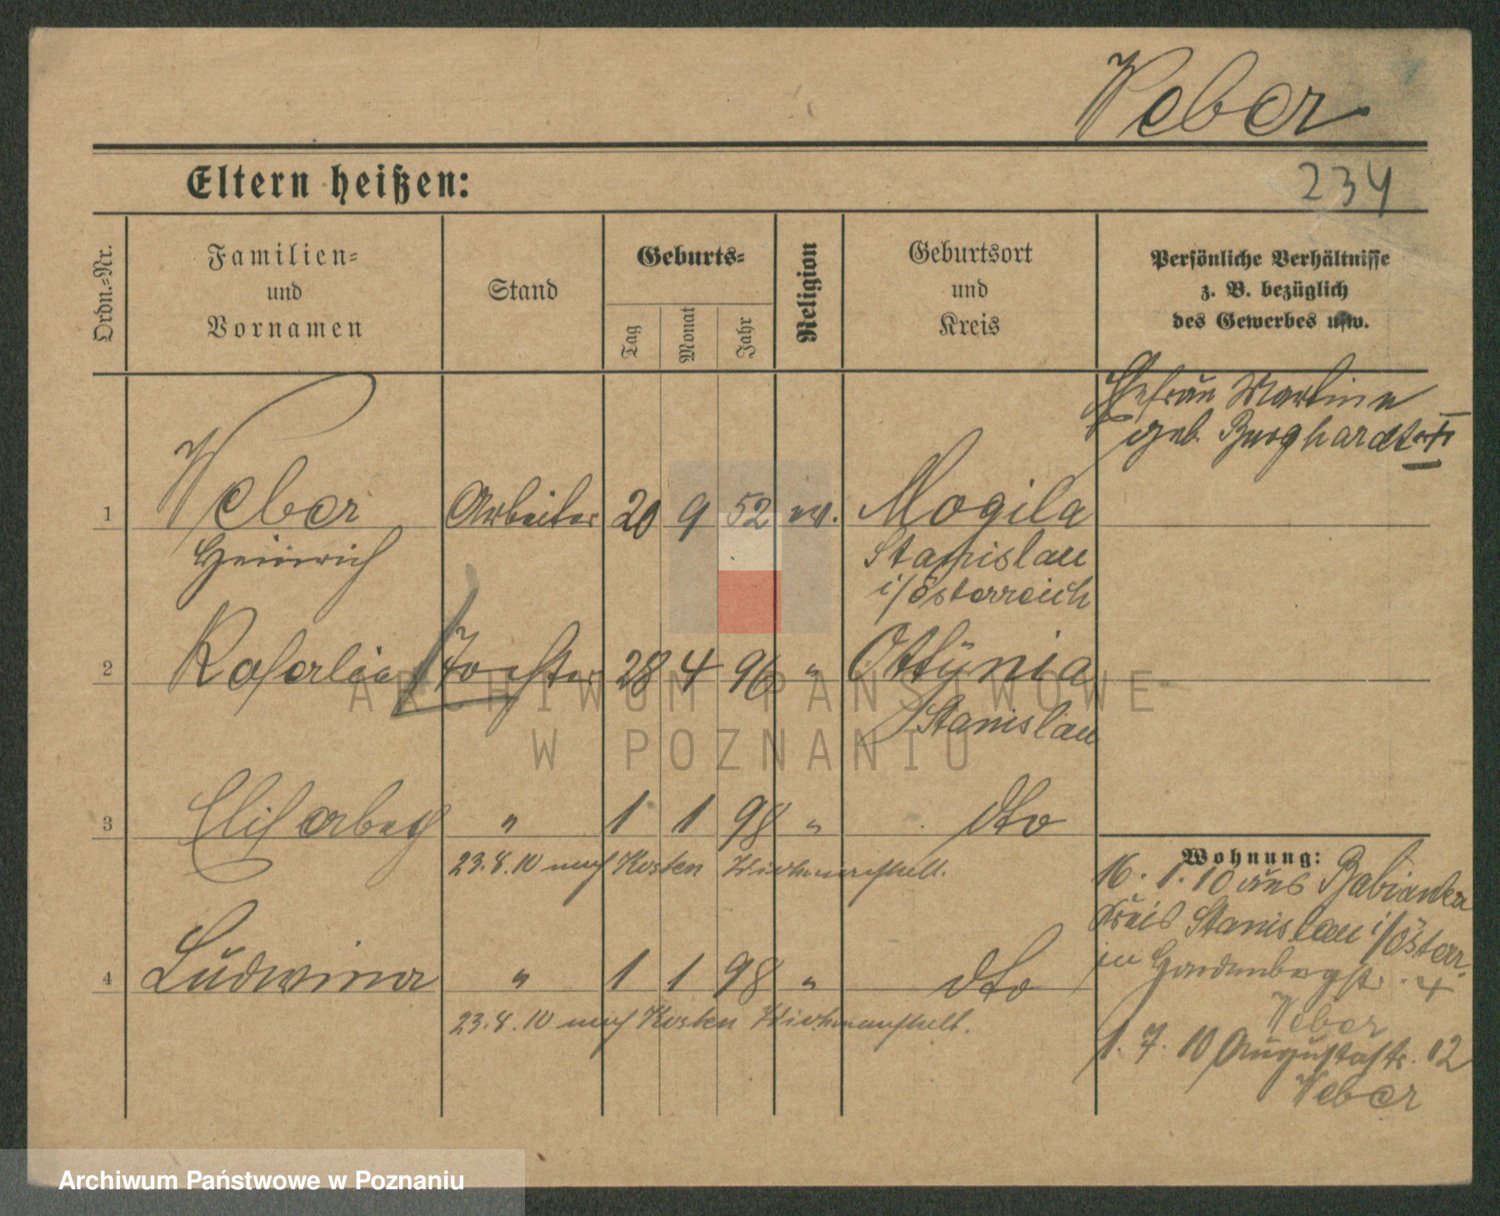 Weber
234
Eltern heißen:
Ordn.-Nr.
Familien-
und
Vornamen
Stand
Geburts-
Tag
Monat
Jahr
Religion
Geburtsort
und
Kreis
Persönliche Verhältnisse
z. B. bezüglich
des Gewerbes usw.
Ehefrau Martine
geb. Burghardt
1 Weber Arbeiter 20 9 52 ev. Mogila
Heinrich Stanislau
i/österreich
2 Rosalie Tochter 28 4 96 " Ottÿnia
Stanislau
3 Elisabeg " 1 1 98 " dto
23.8.10 nach Kosten
Wohnung:
16. 1. 10 aus Babianka
Kreis Stanislau i/österr.
in Gardenbergst. 4
Weber
4 Ludwina " 1 1 98 " dto
23.8.10 nach Kosten
1. 7. 10 Augustastr. 12
Weber
ARCHIWUM PAŃSTWOWE
W POZNANIU
Archiwum Państwowe w Poznaniu